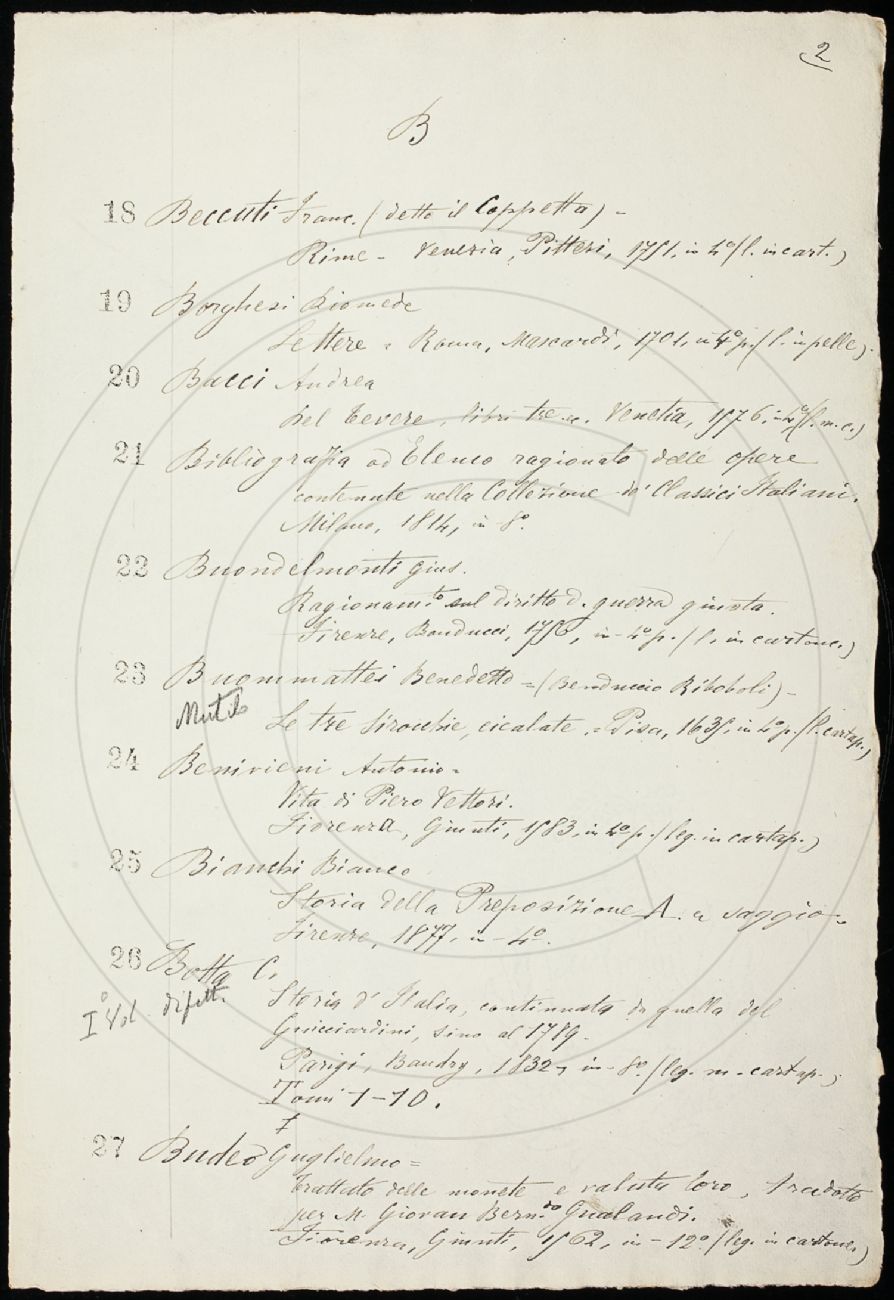 2
B
18 Beccuti Franc. (detto il Coppetta) -
Rime - Venezia, Pitteri, 1751, in 4º (l. in cart.)
19 Borghesi Diomede
Lettere = Roma, Mascardi, 1701, in 4º p. (l. in pelle).
20 Bacci Andrea
Del Tevere, libri tre =. Venetia, 1576, in 4º (l. m. c.)
21 Bibliografia od Elenco ragionato delle opere
contenute nella Collezione de' Classici Italiani.
Milano, 1814, in 8º.
22 Buondelmonti Gius.
Ragionamto sul diritto d. guerra giusta.
Firenze, Bonducci, 1756, in-4º p. (l. in cartone)
23 Buommattei Benedetto = (Benduccio Riboboli) -
Mutilo
Le tre Sirocchie, cicalate. = Pisa, 1635, in 4º p. (l. cartap.)
24 Benivieni Antonio =
Vita di Piero Vettori.
Fiorenza, Giunti, 1583, in 4º p. (leg. in cartap.)
25 Bianchi Bianco
Storia della Preposizione A. = saggio =
Firenze, 1877, in-4º.
26 Botta C.
Iº Vol difett.
Storia d' Italia, continuata da quella del
Guicciardini, sino al 1789.
Parigi, Baudry, 1832, in-8º. (leg. m. cartap.)
Tomi 1-10.
27 Budeo Guglielmo =
Trattato delle monete e valuta loro, tradotto
per M. Giovan Bern.do Gualandi.
Fiorenza, Giunti, 1562, in-12º. (leg. in cartone)